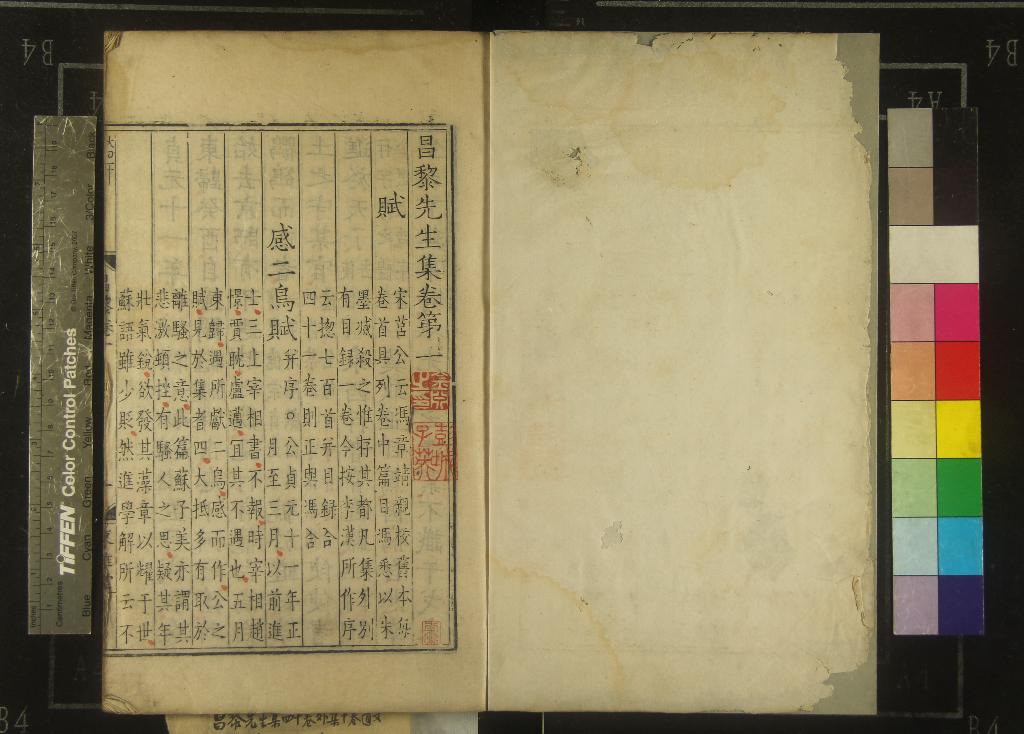 昌黎先生集卷第一
賦
宋莒公云馮章靖親校舊本每
卷首具列卷中篇目馮悉以朱
墨滅殺之惟存其都凡集外別
有目録一卷今按李漢所作序
云捴七百首并目録合
四十一卷則正與馮合
感二鳥賦
并序。公貞元十一年正
月至三月以前進
士三上宰相書不報時宰相趙
憬賈耽盧邁冝其不遇也五月
東歸遇所獻二鳥感而作公之
賦見於集者四大抵多有取於
離騷之意此篇蘇子美亦謂其
悲激頓挫有騷人之思疑其年
壯氣銳欲發其藻章以耀于世
蘇語雖少貶然進學解所云不
昌黎先生集四十卷外集十卷
TIFFEN Color Control Patches
Blue
Cyan
Green
Yellow
Red
Magenta
White
3/Color
Black
Inches
Centimetres
B4
B4
A4
B4
B4